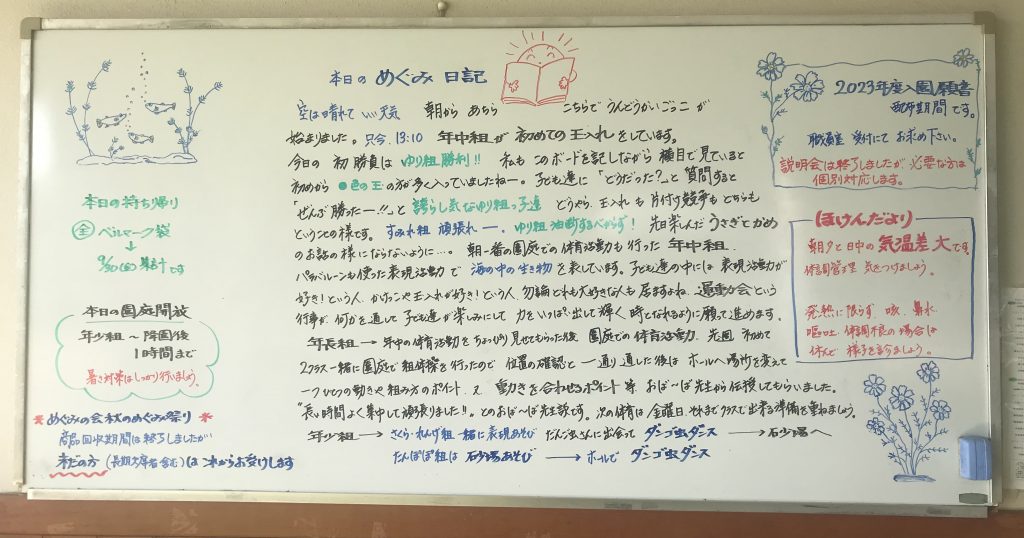 本日の持ち帰り
全 ベルマーク袋
↓
9/30(金)集計です
本日の園庭開放
年少組〜降園後
1時間まで
暑さ対策はしっかり行いましょう。
*めぐみの会秋のめぐみ祭り*
商品回収期間は終了しましたが
未だの方(長期欠席者含む)はこれからお受けします
本日の めぐみ 日記
空は晴れて いい天気 朝から あちら こちらで うんどうかいごっこ が
始まりました。只今、13:10 年中組が 初めての玉入れ をしています。
今日の 初勝負は ゆり組 勝利!! 私も このボードを記しながら 横目で見ていると
初めから ●色の玉 の方が多く入っていましたねー。子ども達に 「どうだった?」と 質問すると
「ぜんぶ 勝ったー!!」と 誇らし気なゆり組っ子達 どうやら、玉入れも 片付け競争も どちらも
ということの様です。すみれ組 頑張れー。ゆり組 油断するべからず! 先日楽しんだ うさぎとかめ
のお話の様に ならないように…。 朝一番の園庭での体育活動も行った 年中組。
パラバルーンも使った表現活動で 海の中の生き物 を表しています。子ども達の中には 表現活動が
好き!という人、かけっこや玉入れが好き!という人、勿論 どれも大好きな人も 居ますよね。運動会という
行事が 何かを通して 子ども達が楽しみにして 力をいっぱい出して輝く 時となれるように願って進めます。
年長組 → 年中の体育活動を ちょっぴり見せてもらった後 園庭での体育活動。先週 初めて
2クラス一緒に園庭で 組体操を行ったので 位置の確認と 一通り通した後は ホールへ場所を変えて
一つひとつの動きや 組み方のポイント、又 動きを合わせるポイント等 おば〜ば先生から伝授してもらいました。
"長い時間よく集中して頑張りました!"。とのおば〜ば先生談です。次の体育は金曜日 それまでクラスで出来る準備を重ねましょう。
年少組 → さくら・れんげ組 一緒に表現あそび だんご虫さんに出会って ダンゴ虫ダンス → 石砂場へ
たんぽぽ組は 石砂場あそび → ホールで ダンゴ虫ダンス
2023年度入園願書
配布期間です。
職員室 受付にて お求め下さい。
説明会は終了しましたが 必要な方は
個別対応します。
ほけんだより
朝夕と日中の 気温差 大です。
体調管理 気をつけましょう。
発熱に限らず 咳、鼻水
嘔吐、体調不良の場合は
休んで 様子を診ましょう。